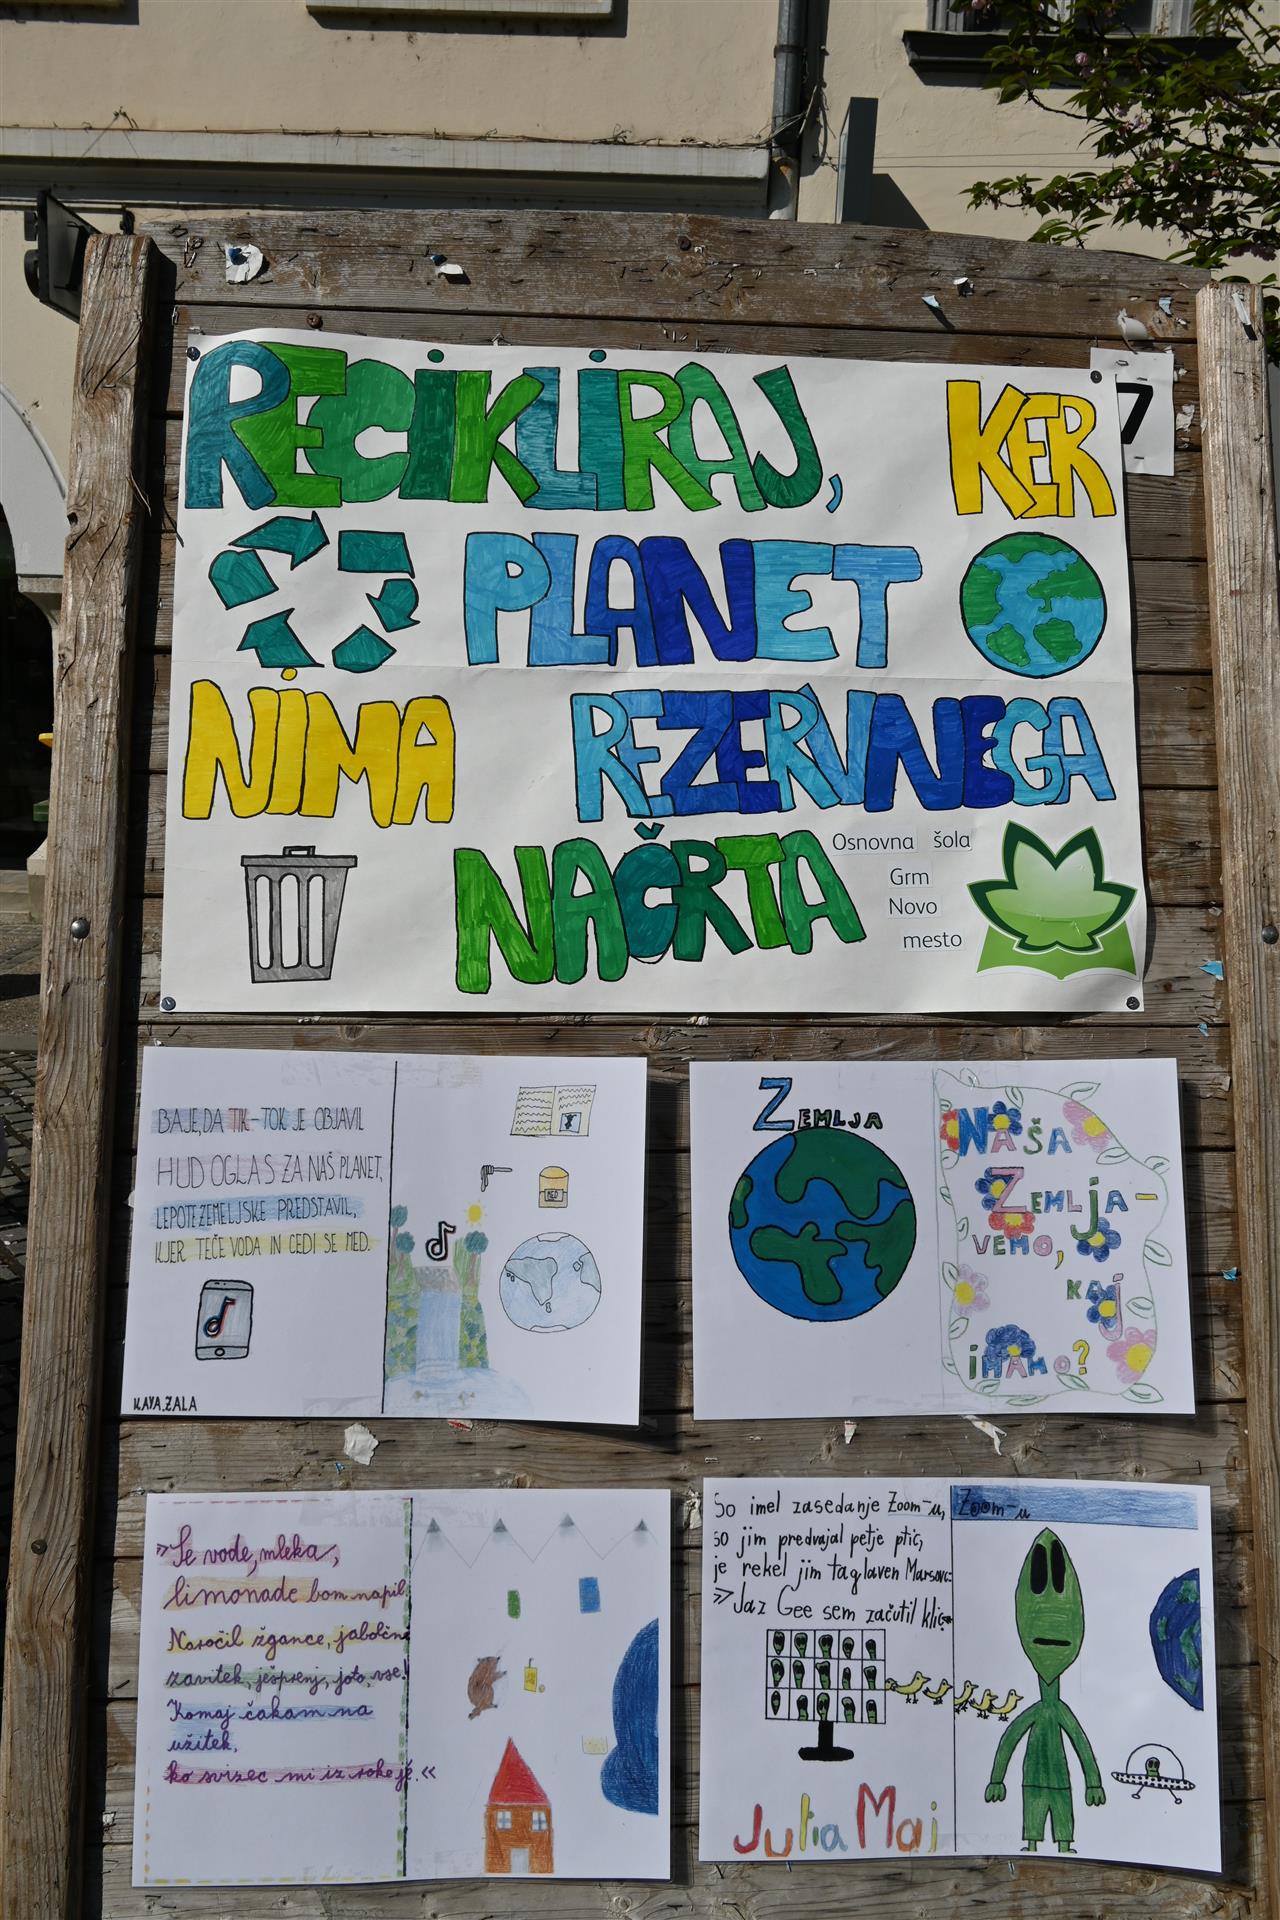 RECIKLIRAJ, KER
PLANET
NIMA REZERVNEGA
NAČRTA
Osnovna šola
Grm
Novo
mesto
7
BAJE, DA TIK-TOK JE OBJAVIL
HUD OGLAS ZA NAŠ PLANET,
LEPOTE ZEMELJSKE PREDSTAVIL,
KJER TEČE VODA IN CEDI SE MED.
MED
KAYA, ZALA
ZEMLJA
NAŠA
ZEMLJA-
VEMO,
KAJ
IMAMO?
»Še vode, mleka,
limonade bom napil.
Naročil žgance, jabolčne
zavitek, ješprenj, joto, vse!
Komaj čakam na
užitek,
ko svizec mi iz roke je.«
So imel zasedanje Zoom-u,
so jim predvajal petje ptic,
je rekel jim ta glaven Marsovc:
»Jaz Gee sem začutil klic«
Zoom-u
Julia Maj